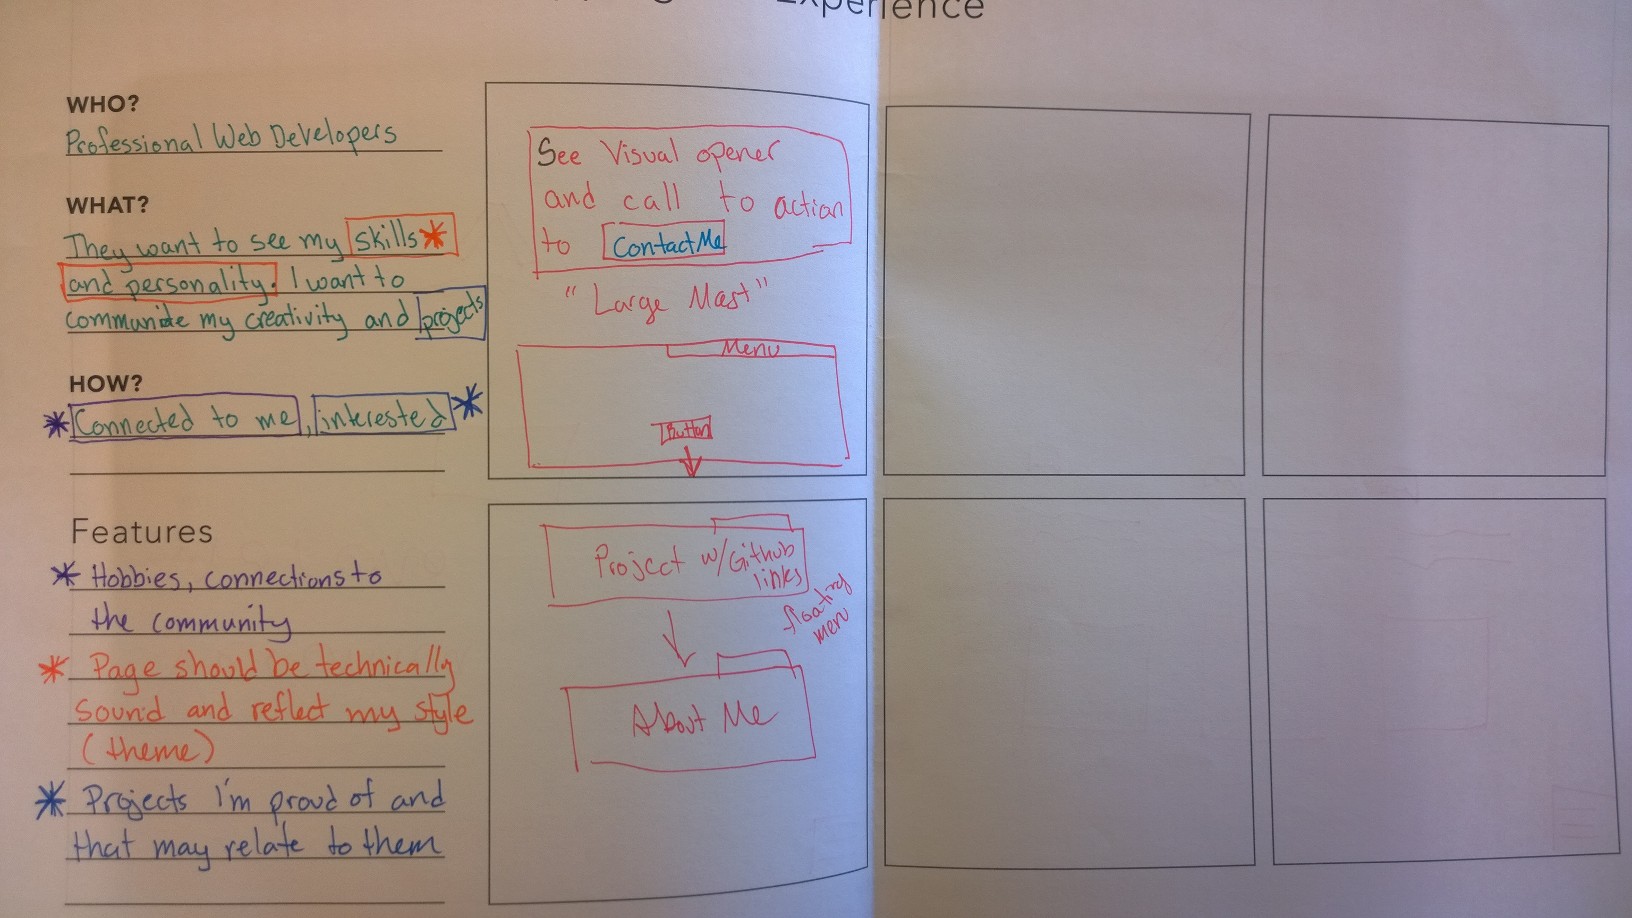 Experience
WHO?
Professional Web Developers
WHAT?
They want to see my skills*
and personality. I want to
my creativity and projects
HOW?
* Connected to me, interested *
Features
* Hobbies, connections to
the community
* Page should be technically
sound and reflect my style
(theme)
* Projects I'm proud of and
that may relate to them
See Visual opener
and call to action
to Contact Me
"Large Mast"
Menu
Button
Project w/Github
links
floating
menu
About Me